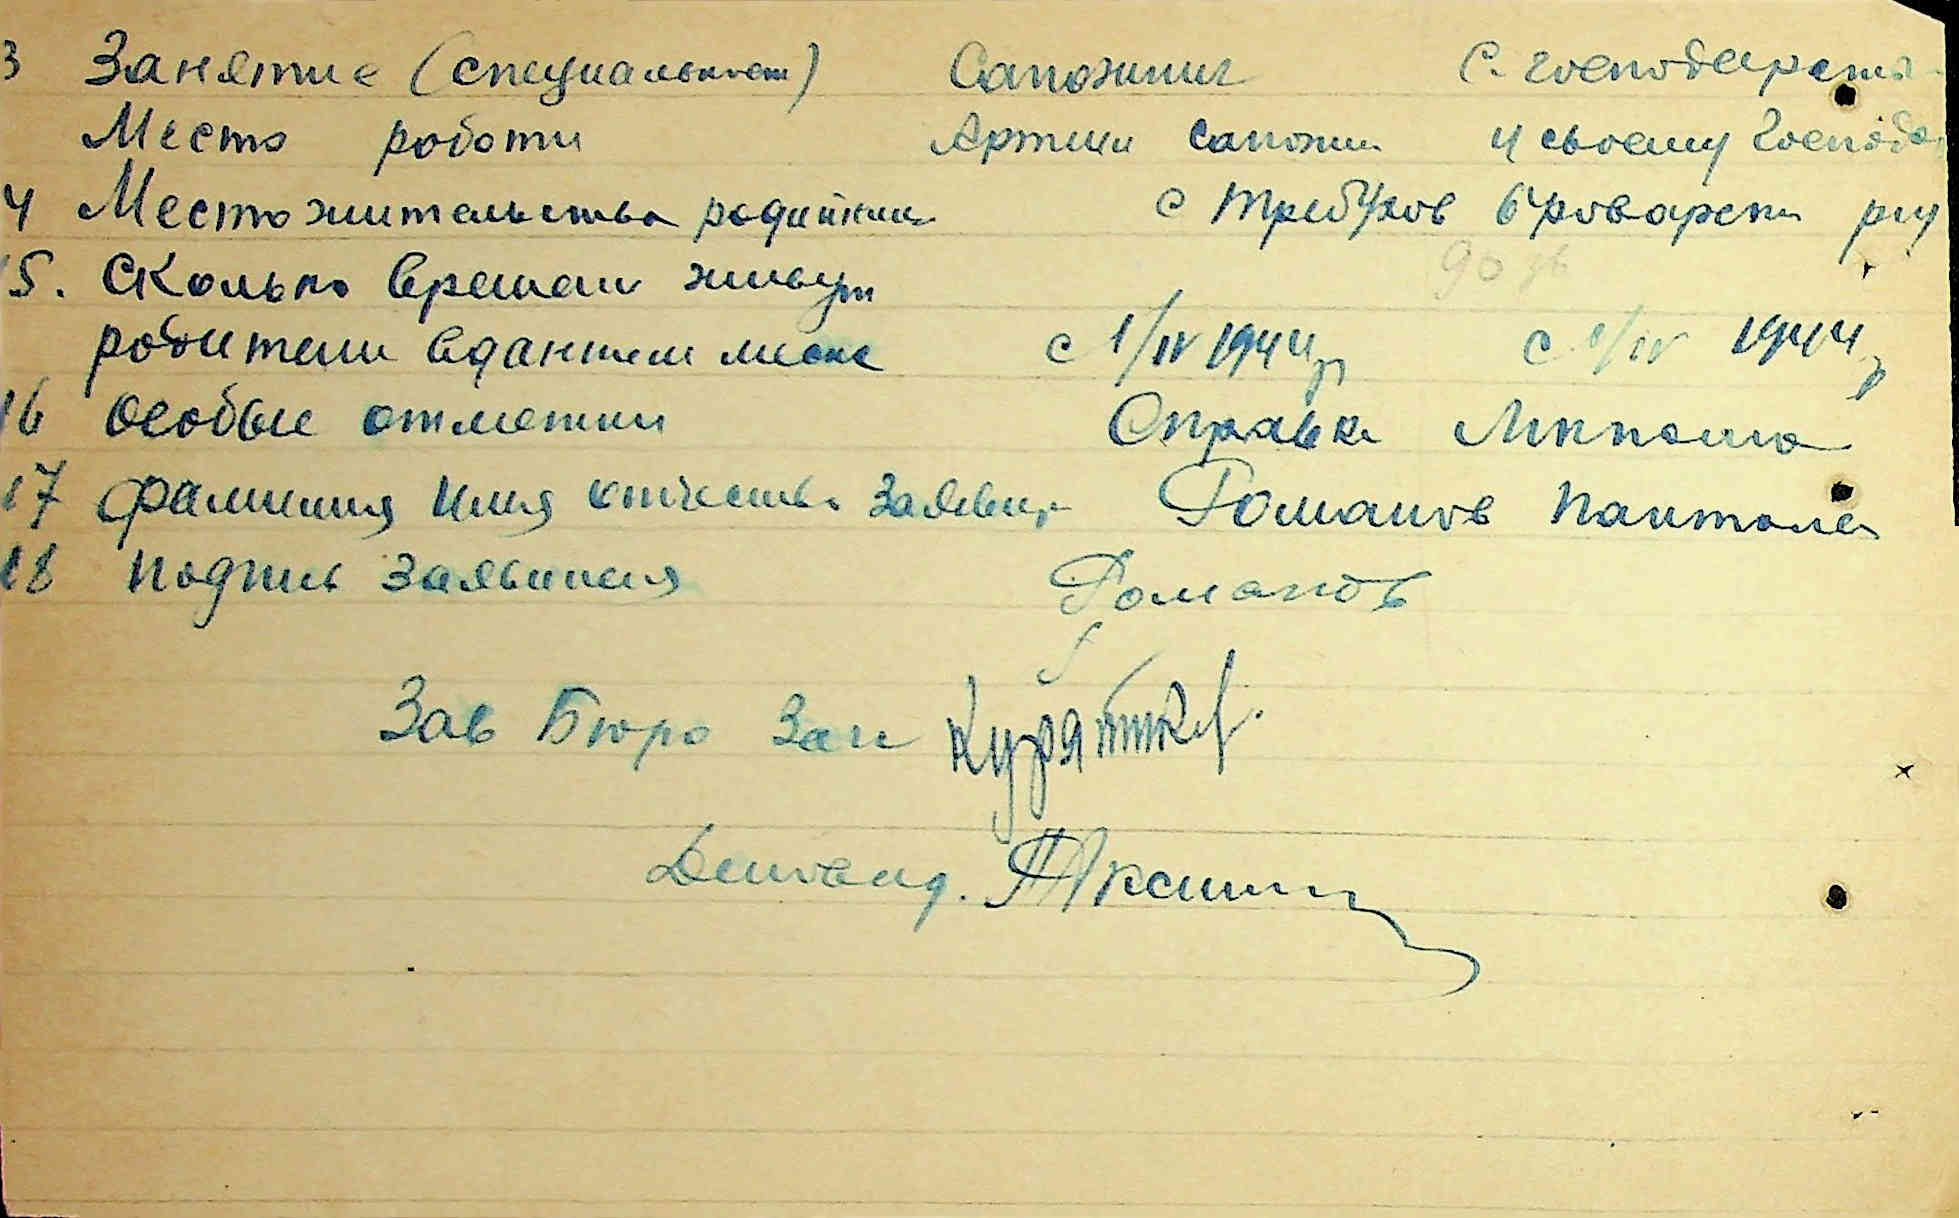 3 Занятие (специальност) Сапожник С. господарств
Место роботи Артили сапожн у своему господа
4 Местожительства родители с Требухов Броварски р-ну
15. Сколько времени живут
родители в данном месте с 1/IV 1944 р с 1/IV 1944 р
16 Особые отметки Справка
17 Фамилия Имя отчество Заявит Романов Пантоле
18 подпись Заявителя Романов
Зав Бюро Заг
Диловод.